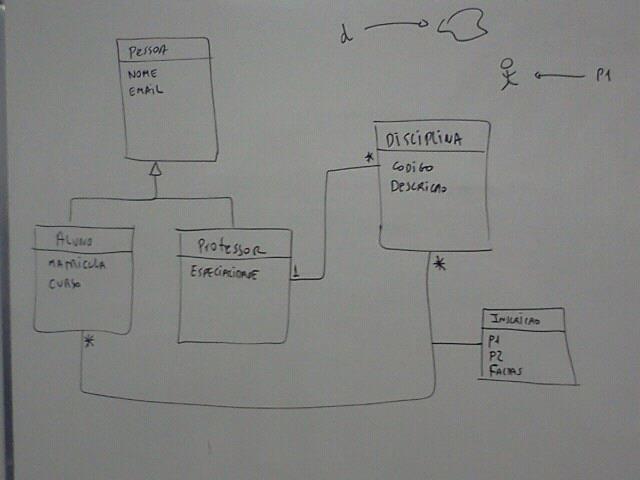 d
P1
PESSOA
NOME
EMAIL
DISCIPLINA
*
CODIGO
DESCRICAO
ALUNO
MATRICULA
CURSO
PROFESSOR
ESPECIALIDADE
1
*
*
INSCRICAO
P1
P2
FALTAS